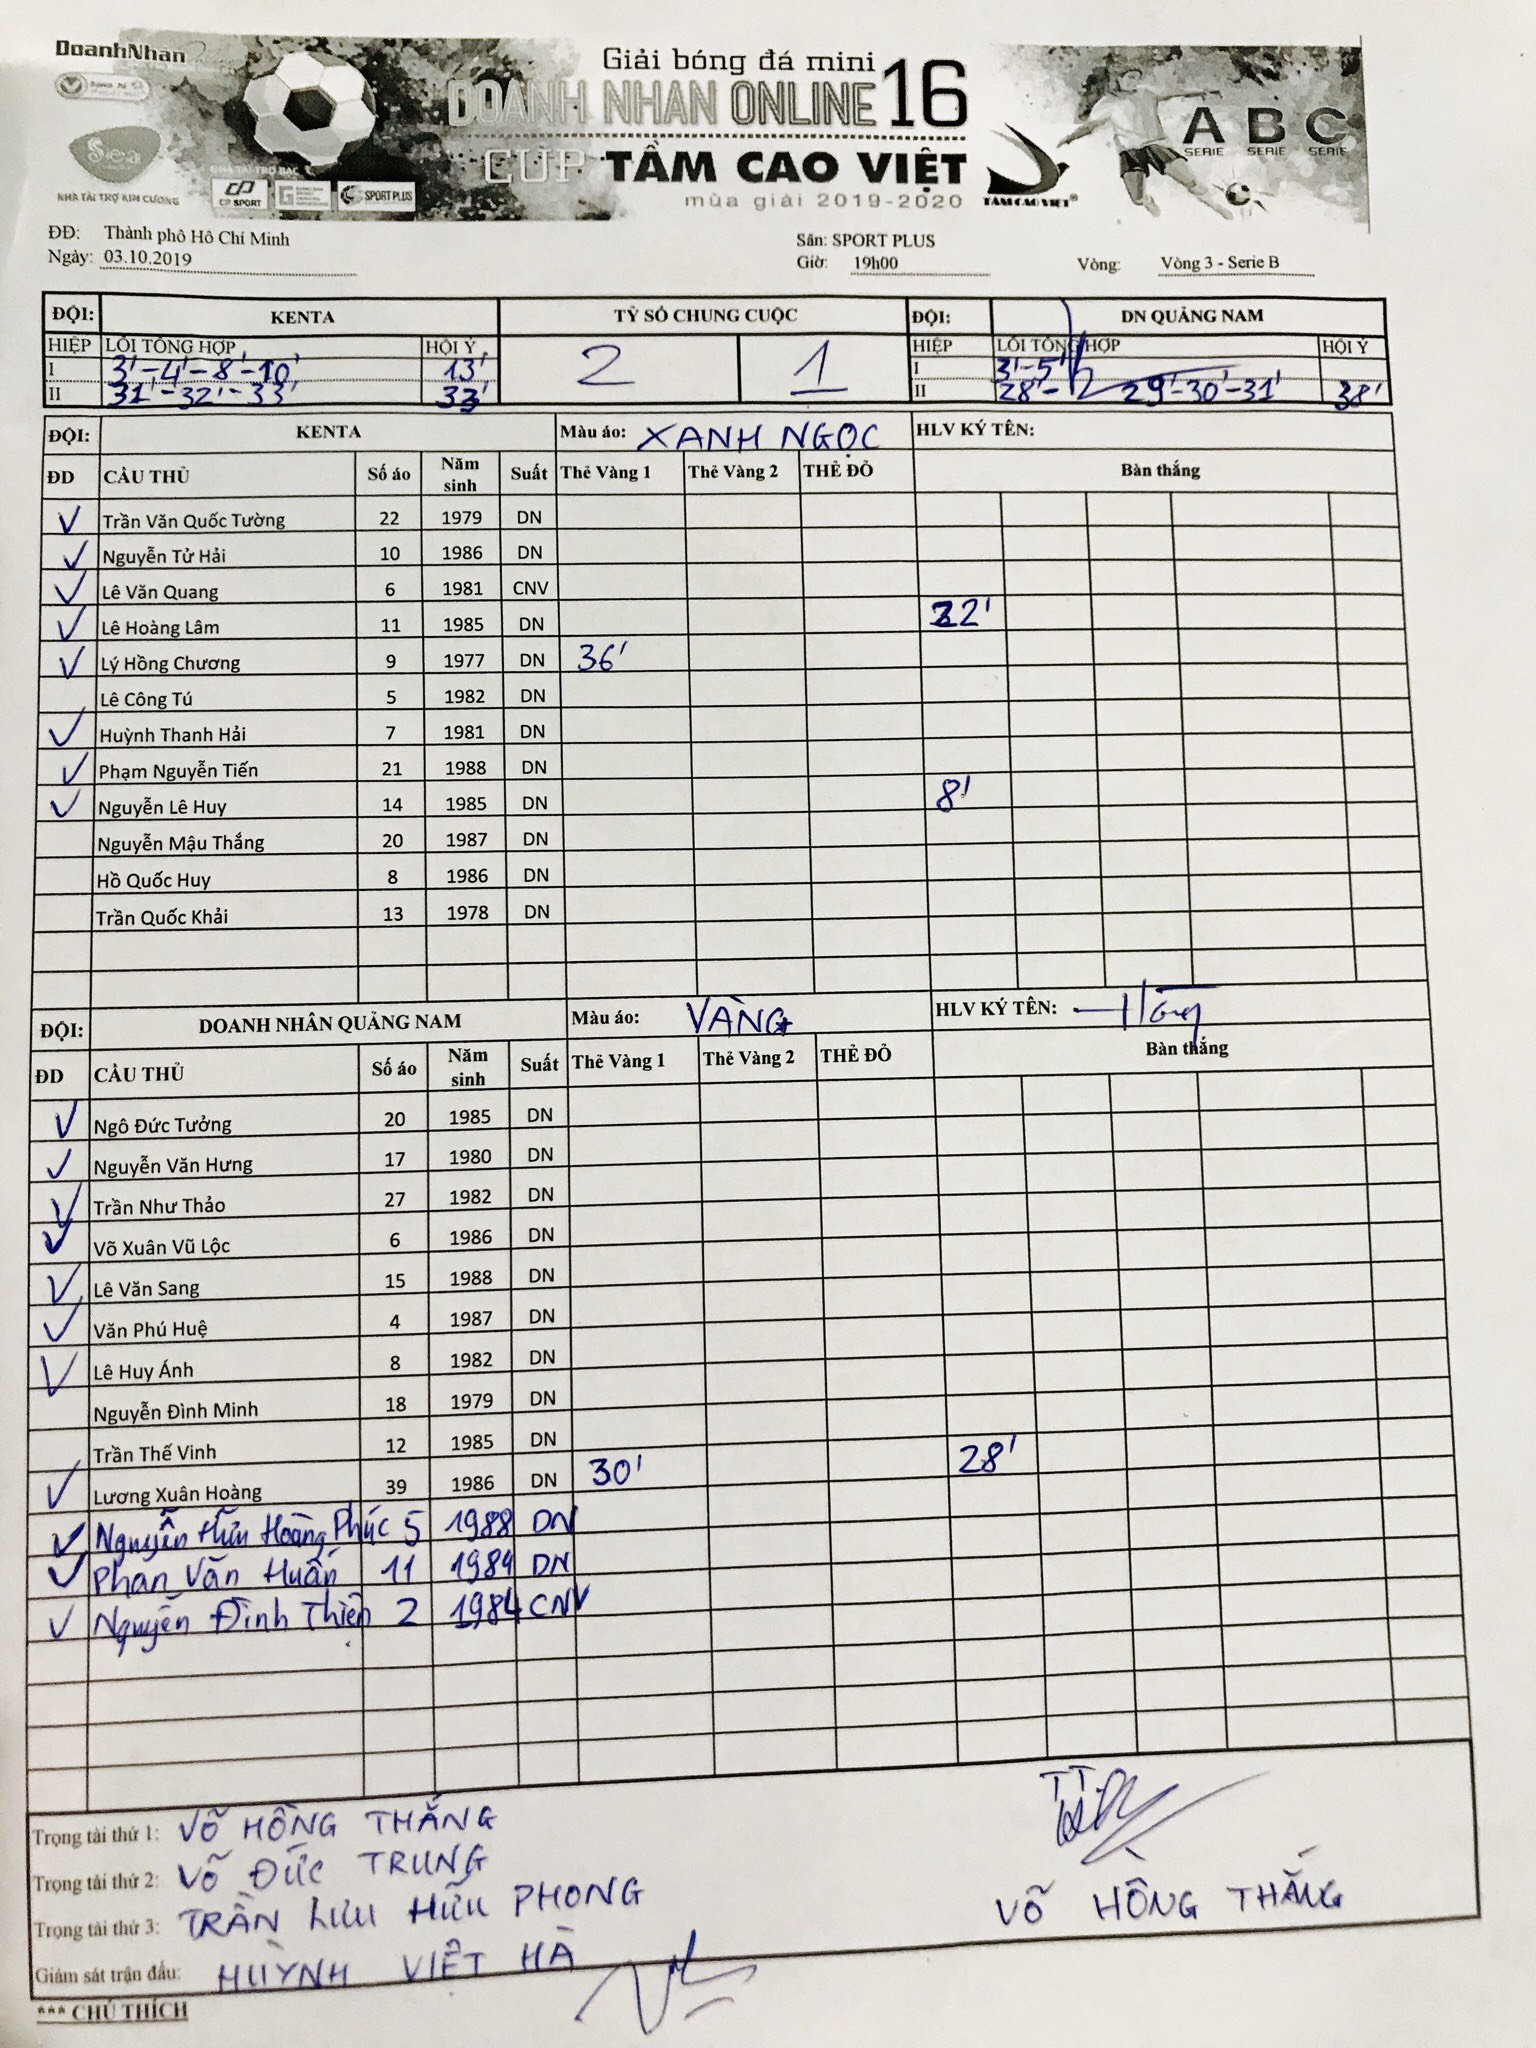 DoanhNhan
Giải bóng đá mini
DOANH NHAN ONLINE 16
CUP TẦM CAO VIỆT
mùa giải 2019-2020
NHÀ TÀI TRỢ KIM CƯƠNG
NHÀ TÀI TRỢ BẠC
CP SPORT
SPORT PLUS
TẦM CAO VIỆT
A B C
SERIE SERIE SERIE
ĐĐ: Thành phô Hô Chí Minh
Sân: SPORT PLUS
Ngày: 03.10.2019 Giờ: 19h00 Vòng: Vòng 3 - Serie B
ĐỘI: KENTA TỶ SỐ CHUNG CUỘC ĐỘI: DN QUẢNG NAM
HIỆP LỖI TỔNG HỢP HỘI Ý 2 1 HIỆP LỖI TỔNG HỢP HỘI Ý
I 3'-4'-8'-10' 13' I 3'-5'
II 31'-32'-33' 33' II 28'- 29'-30'-31' 38'
ĐỘI: KENTA Màu áo: XANH NGỌC HLV KÝ TÊN:
ĐD CẦU THỦ Số áo Năm sinh Suất Thẻ Vàng 1 Thẻ Vàng 2 THẺ ĐỎ Bàn thắng
✓ Trần Văn Quốc Tường 22 1979 DN
✓ Nguyễn Tử Hải 10 1986 DN
✓ Lê Văn Quang 6 1981 CNV
✓ Lê Hoàng Lâm 11 1985 DN 22'
✓ Lý Hồng Chương 9 1977 DN 36'
Lê Công Tú 5 1982 DN
✓ Huỳnh Thanh Hải 7 1981 DN
✓ Phạm Nguyễn Tiến 21 1988 DN
✓ Nguyễn Lê Huy 14 1985 DN 8'
Nguyễn Mậu Thắng 20 1987 DN
Hồ Quốc Huy 8 1986 DN
Trần Quốc Khải 13 1978 DN
ĐỘI: DOANH NHÂN QUẢNG NAM Màu áo: VÀNG HLV KÝ TÊN:
ĐD CẦU THỦ Số áo Năm sinh Suất Thẻ Vàng 1 Thẻ Vàng 2 THẺ ĐỎ Bàn thắng
✓ Ngô Đức Tưởng 20 1985 DN
✓ Nguyễn Văn Hưng 17 1980 DN
✓ Trần Như Thảo 27 1982 DN
✓ Võ Xuân Vũ Lộc 6 1986 DN
✓ Lê Văn Sang 15 1988 DN
✓ Văn Phú Huệ 4 1987 DN
✓ Lê Huy Ánh 8 1982 DN
Nguyễn Đình Minh 18 1979 DN
Trần Thế Vinh 12 1985 DN
✓ Lương Xuân Hoàng 39 1986 DN 30' 28'
✓ Nguyễn Hữu Hoàng Phúc 5 1988 DN
✓ Phan Văn Huấn 11 1984 DN
✓ Nguyễn Đình Thiện 2 1984 CNV
Trọng tài thứ 1: VÕ HỒNG THẮNG
Trọng tài thứ 2: VÕ ĐỨC TRUNG
Trọng tài thứ 3: TRẦN LƯU HỮU PHONG
Giám sát trận đấu: HUỲNH VIỆT HÀ
VÕ HỒNG THẮNG
*** CHÚ THÍCH